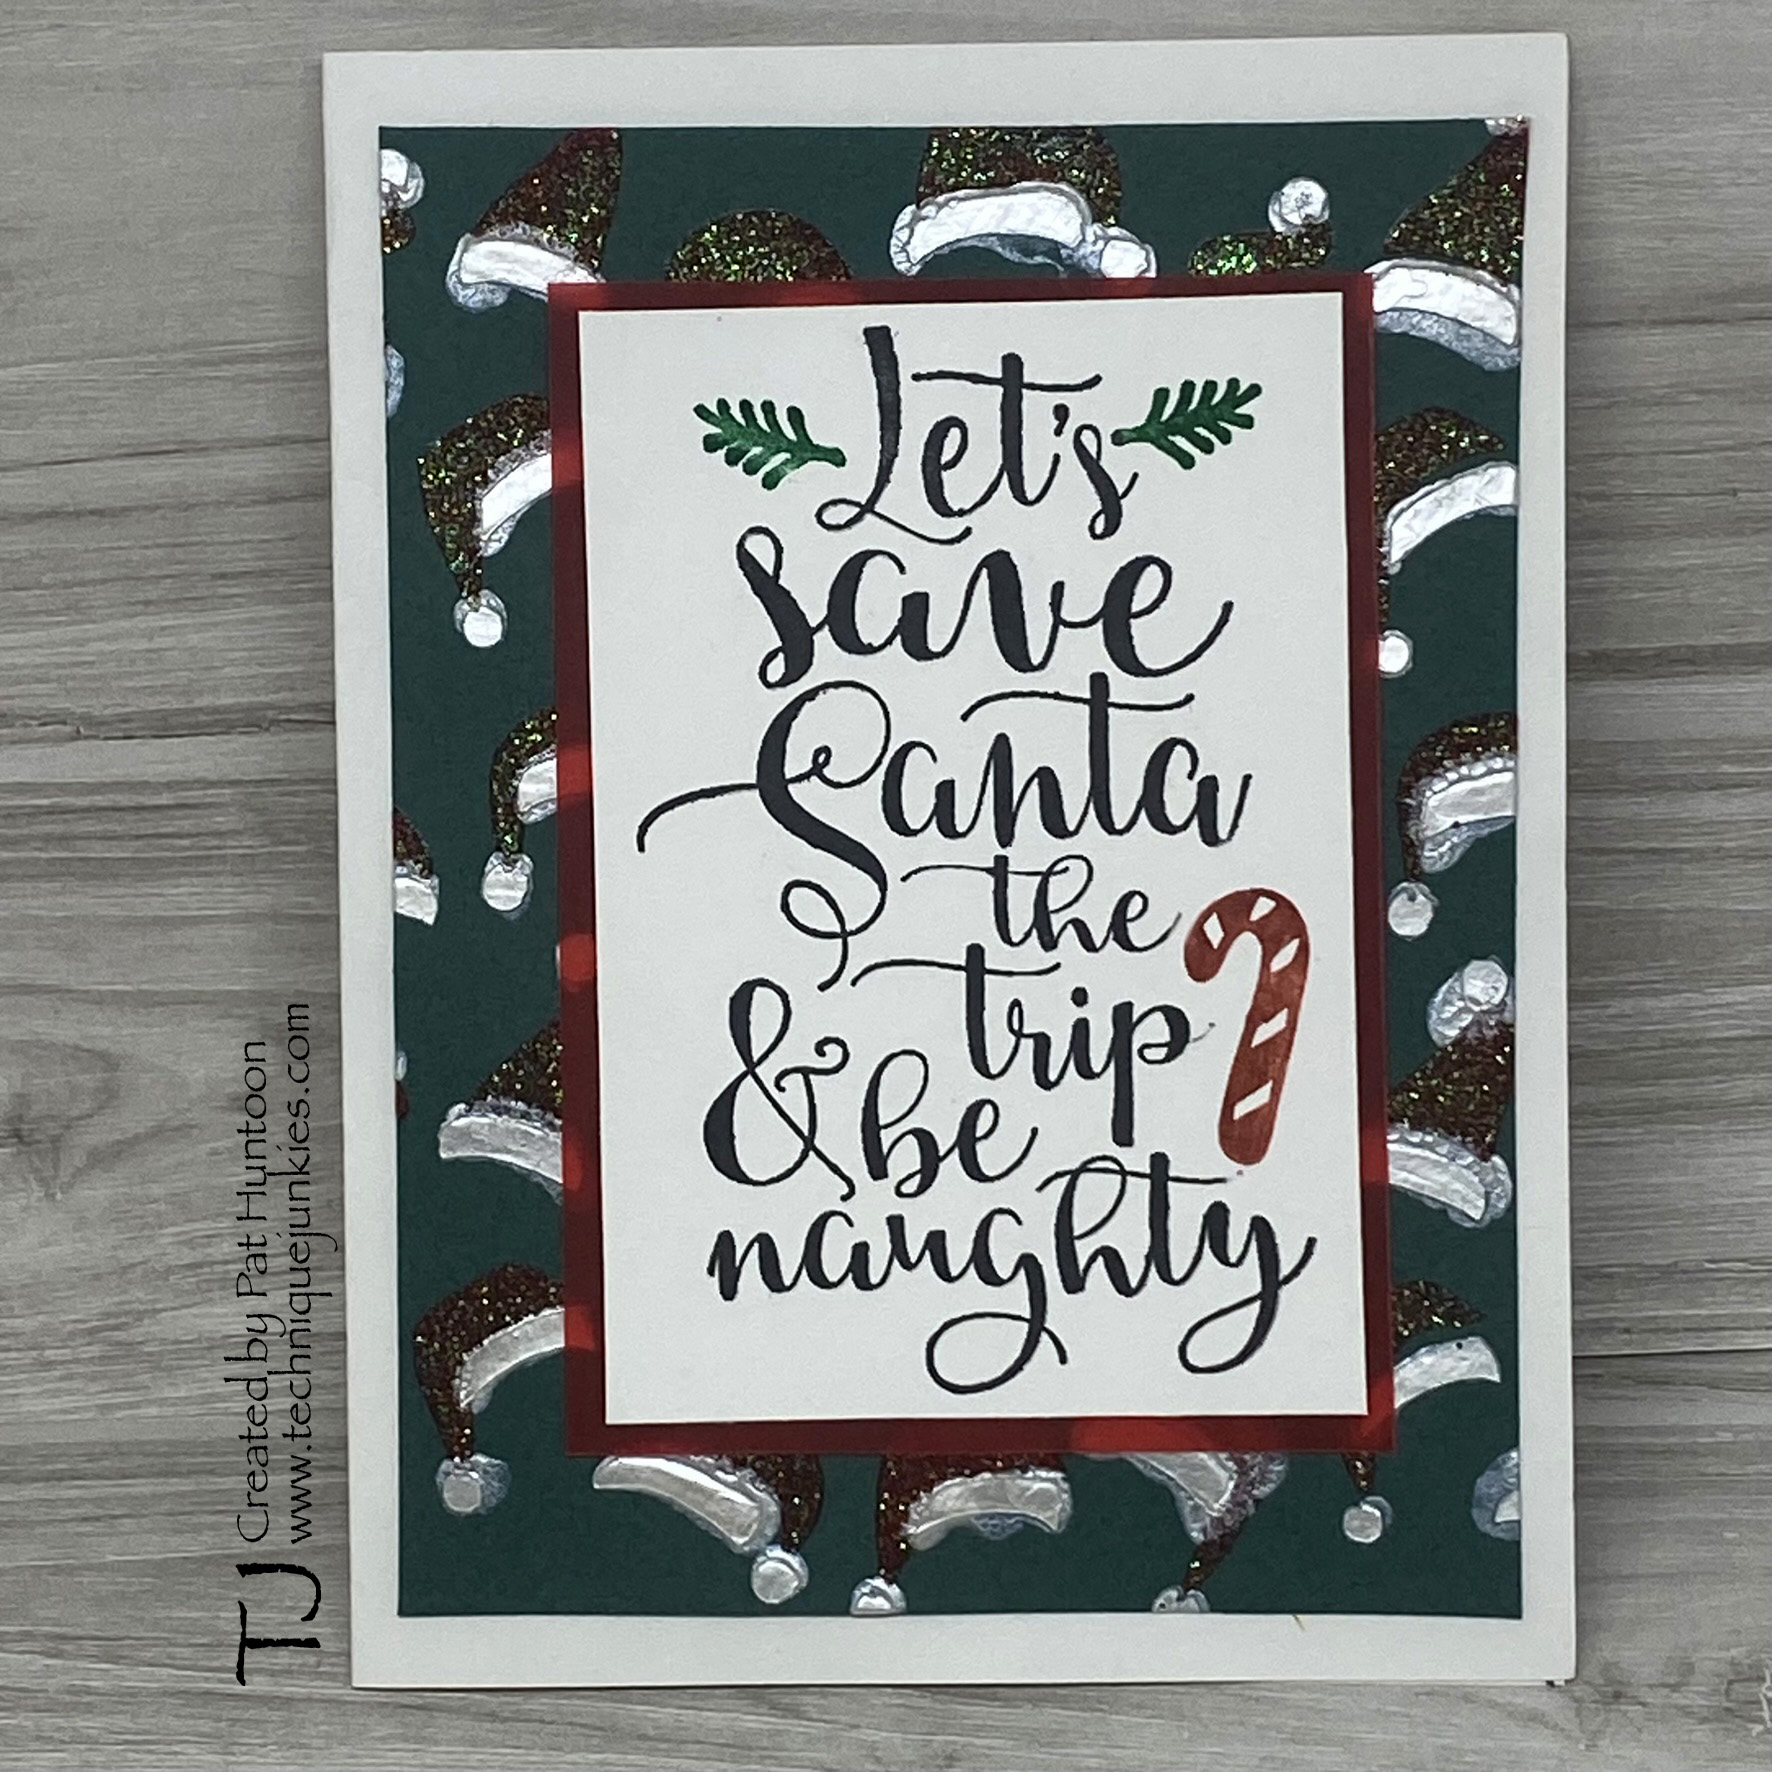 Let's
save
Santa
the
trip
& be
naughty
TJ Created by Pat Huntoon
www.techniquejunkies.com